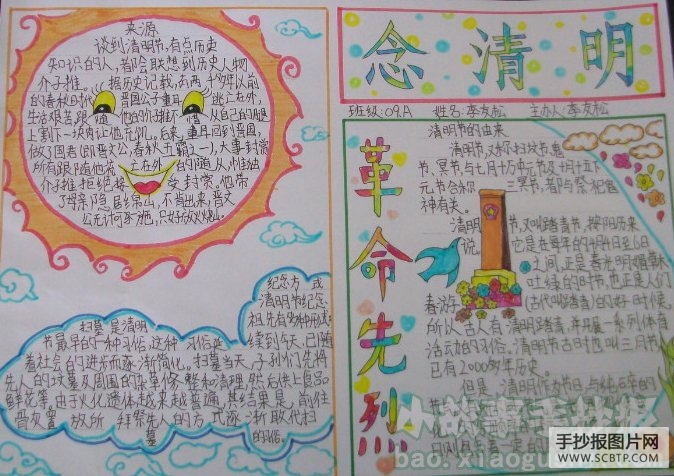 来源
谈到清明节,有点历史
知识的人,都会联想到历史人物
介子推。据历史记载,在两千多年以前
的春秋时代 晋国公子重耳 逃亡在外,
生活艰苦 跟随 他的介子推不惜 从自己的腿
上割下一块肉让他充饥。后来,重耳回到晋国,
做了国君(即晋文公,春秋五霸之一),大事封赏
所有跟随他流亡在外的随从,惟独
介子推拒绝接受封赏。他带
了母亲隐居绵山,不肯出来,晋文
公无计可施,只好放火烧山。
扫墓是清明
节最早的一种习俗,这种习俗延
续到今天,已随
着社会的进步而逐渐简化。扫墓当天,子孙们先将
先人的坟墓及周围的杂草修整和清理,然后供上食品
鲜花等。由于火化遗体越来越普遍,其结果是,前往
骨灰置放所拜祭先人的方式逐渐取代扫
墓的习俗。
纪念方式
清明节纪念
祖先有多种形式
念清明
班级:09.A 姓名:李友松 主办人:李友松
革命先烈
清明节的由来
清明节,又称扫坟节、鬼
节、冥节,与七月十五中元节及十月十五下
元节合称三冥节,都与祭祀鬼
神有关。
清明节,又叫踏青节,按阳历来
说,它是在每年的4月4日至6日
之间,正是春光明媚草木
吐绿的时节,也正是人们
春游(古代叫踏青)的好时候,
所以古人有清明踏青,并开展一系列体育
活动的习俗。清明节古时也叫三月节,
已有2000多年历史。
但是,清明作为节日,与纯
小故事手抄报
bao.xiaogu
手抄报图片网
WWW.SCBTP.COM